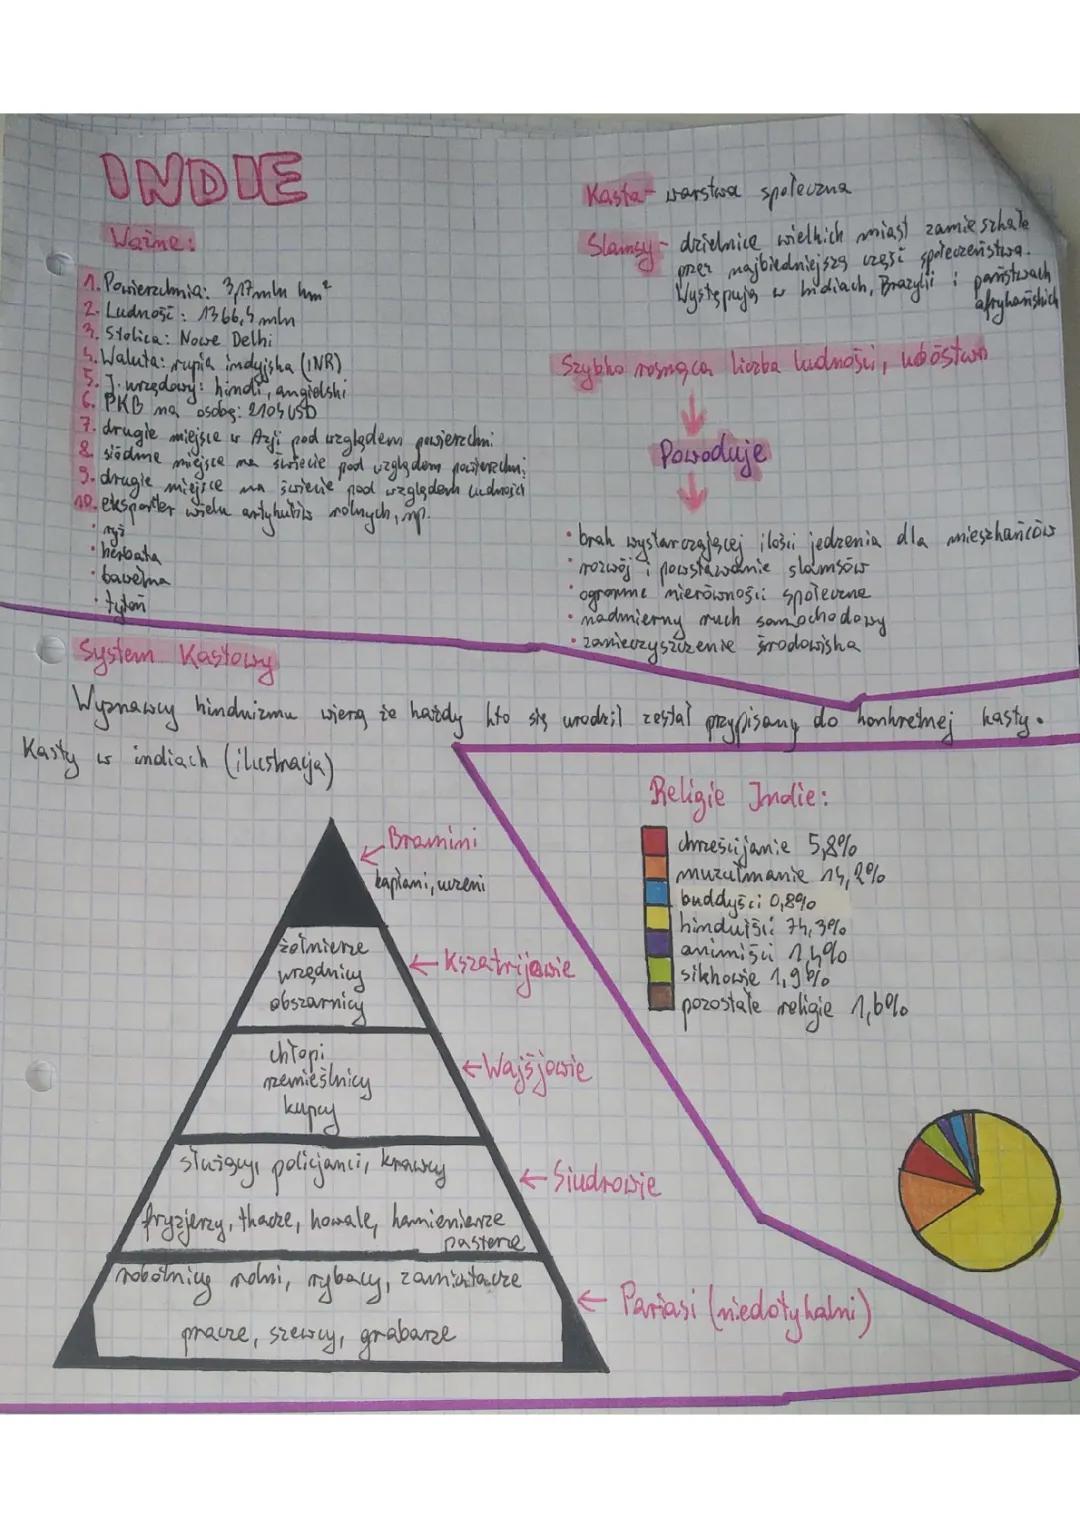 INDIE
Ważne:
1. Powierzchnia: 3,17 mln km²
2. Ludność: 1366,5 mln
3. Stolica: Nowe Delhi
4. Waluta: rupia indyjska (INR)
5. J. urzędowy: hindi, angielski
6. PKB na osobę: 2104 USD
7. drugie miejsce w Azji pod względem powierzchni
8. siódme miejsce na świecie pod względem powierzchni
9. drugie miejsce na świecie pod względem ludności
10. eksporter wielu artykułów rolnych, np.
· ryż
· herbata
· bawełna
· tytoń
Kasta - warstwa społeczna
Slamsy - dzielnice wielkich miast zamieszkałe
przez najbiedniejszą część społeczeństwa.
Występują w Indiach, Brazylii i państwach
afrykańskich
Szybko rosnąca liczba ludności, ubóstwo
Powoduje
· brak wystarczającej ilości jedzenia dla mieszkańców
· rozwój i powstawanie slamsów
· ogromne nierówności społeczne
· nadmierny ruch samochodowy
· zanieczyszczenie środowiska
System Kastowy
Wyznawcy hinduizmu wierzą że każdy kto się urodził został przypisany do konkretnej kasty.
Kasty w indiach (ilustracja)
Bramini
kapłani, uczeni
żołnierze
urzędnicy
obszarnicy
Kszatrijowie
chłopi
rzemieślnicy
kupcy
Wajśjowie
służący, policjanci, krawcy
fryzjerzy, tkacze, kowale, kamieniarze
pasterze
Siudrowie
robotnicy rolni, rybacy, zamiatacze
pracze, szewcy, grabarze
Pariasi (niedotykalni)
Religie Indie:
chrześcijanie 5,8%
muzułmanie 14,2%
buddyści 0,8%
hinduiści 74,3%
animiści 1,4%
sikhowie 1,9%
pozostałe religie 1,6%